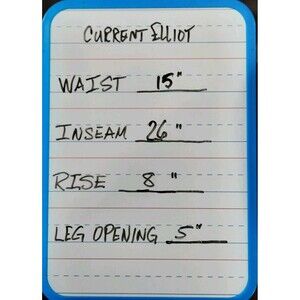 CURRENT ELLIOT
WAIST 15"
INSEAM 26"
RISE 8"
LEG OPENING 5"